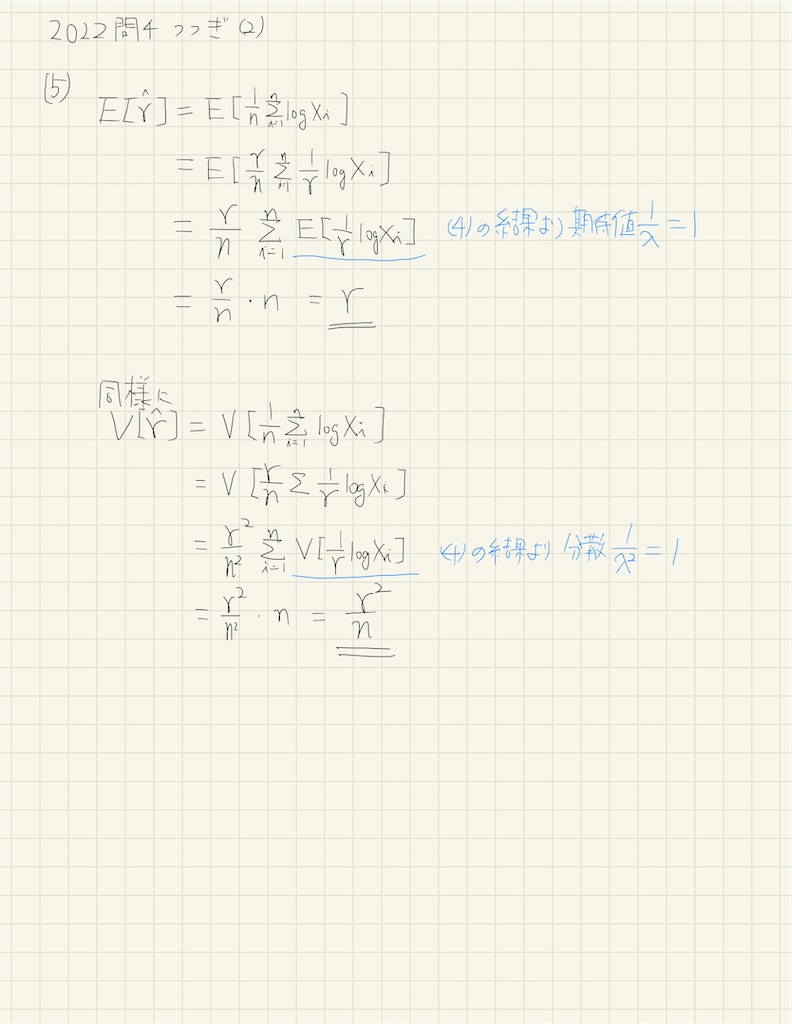 2022 問4 つづき (2)
(5)
E[γ̂] = E[1/n Σ_{i=1}^{n} log Xi]
= E[γ/n Σ_{i=1}^{n} 1/γ log Xi]
= γ/n Σ_{i=1}^{n} E[1/γ log Xi] (4)の結果より 期待値 1/λ = 1
= γ/n · n = γ
同様に
V[γ̂] = V[1/n Σ_{i=1}^{n} log Xi]
= V[γ/n Σ 1/γ log Xi]
= γ²/n² Σ_{i=1}^{n} V[1/γ log Xi] (4)の結果より 分散 1/λ² = 1
= γ²/n² · n = γ²/n